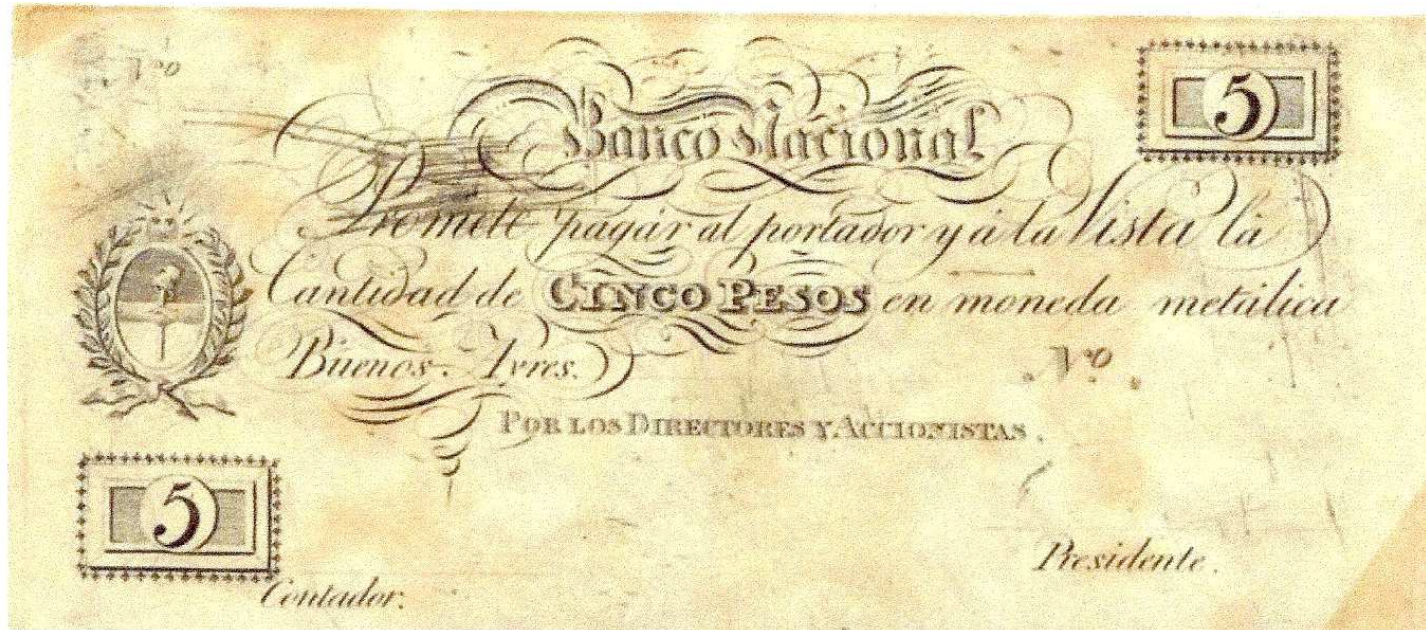 No
5
Banco Nacional
Promete pagár al portador y á la Vista la
Cantidad de CINCO PESOS en moneda metálica
Buenos-Ayres.
No
POR LOS DIRECTORES Y ACCIONISTAS.
5
Presidente.
Contador.